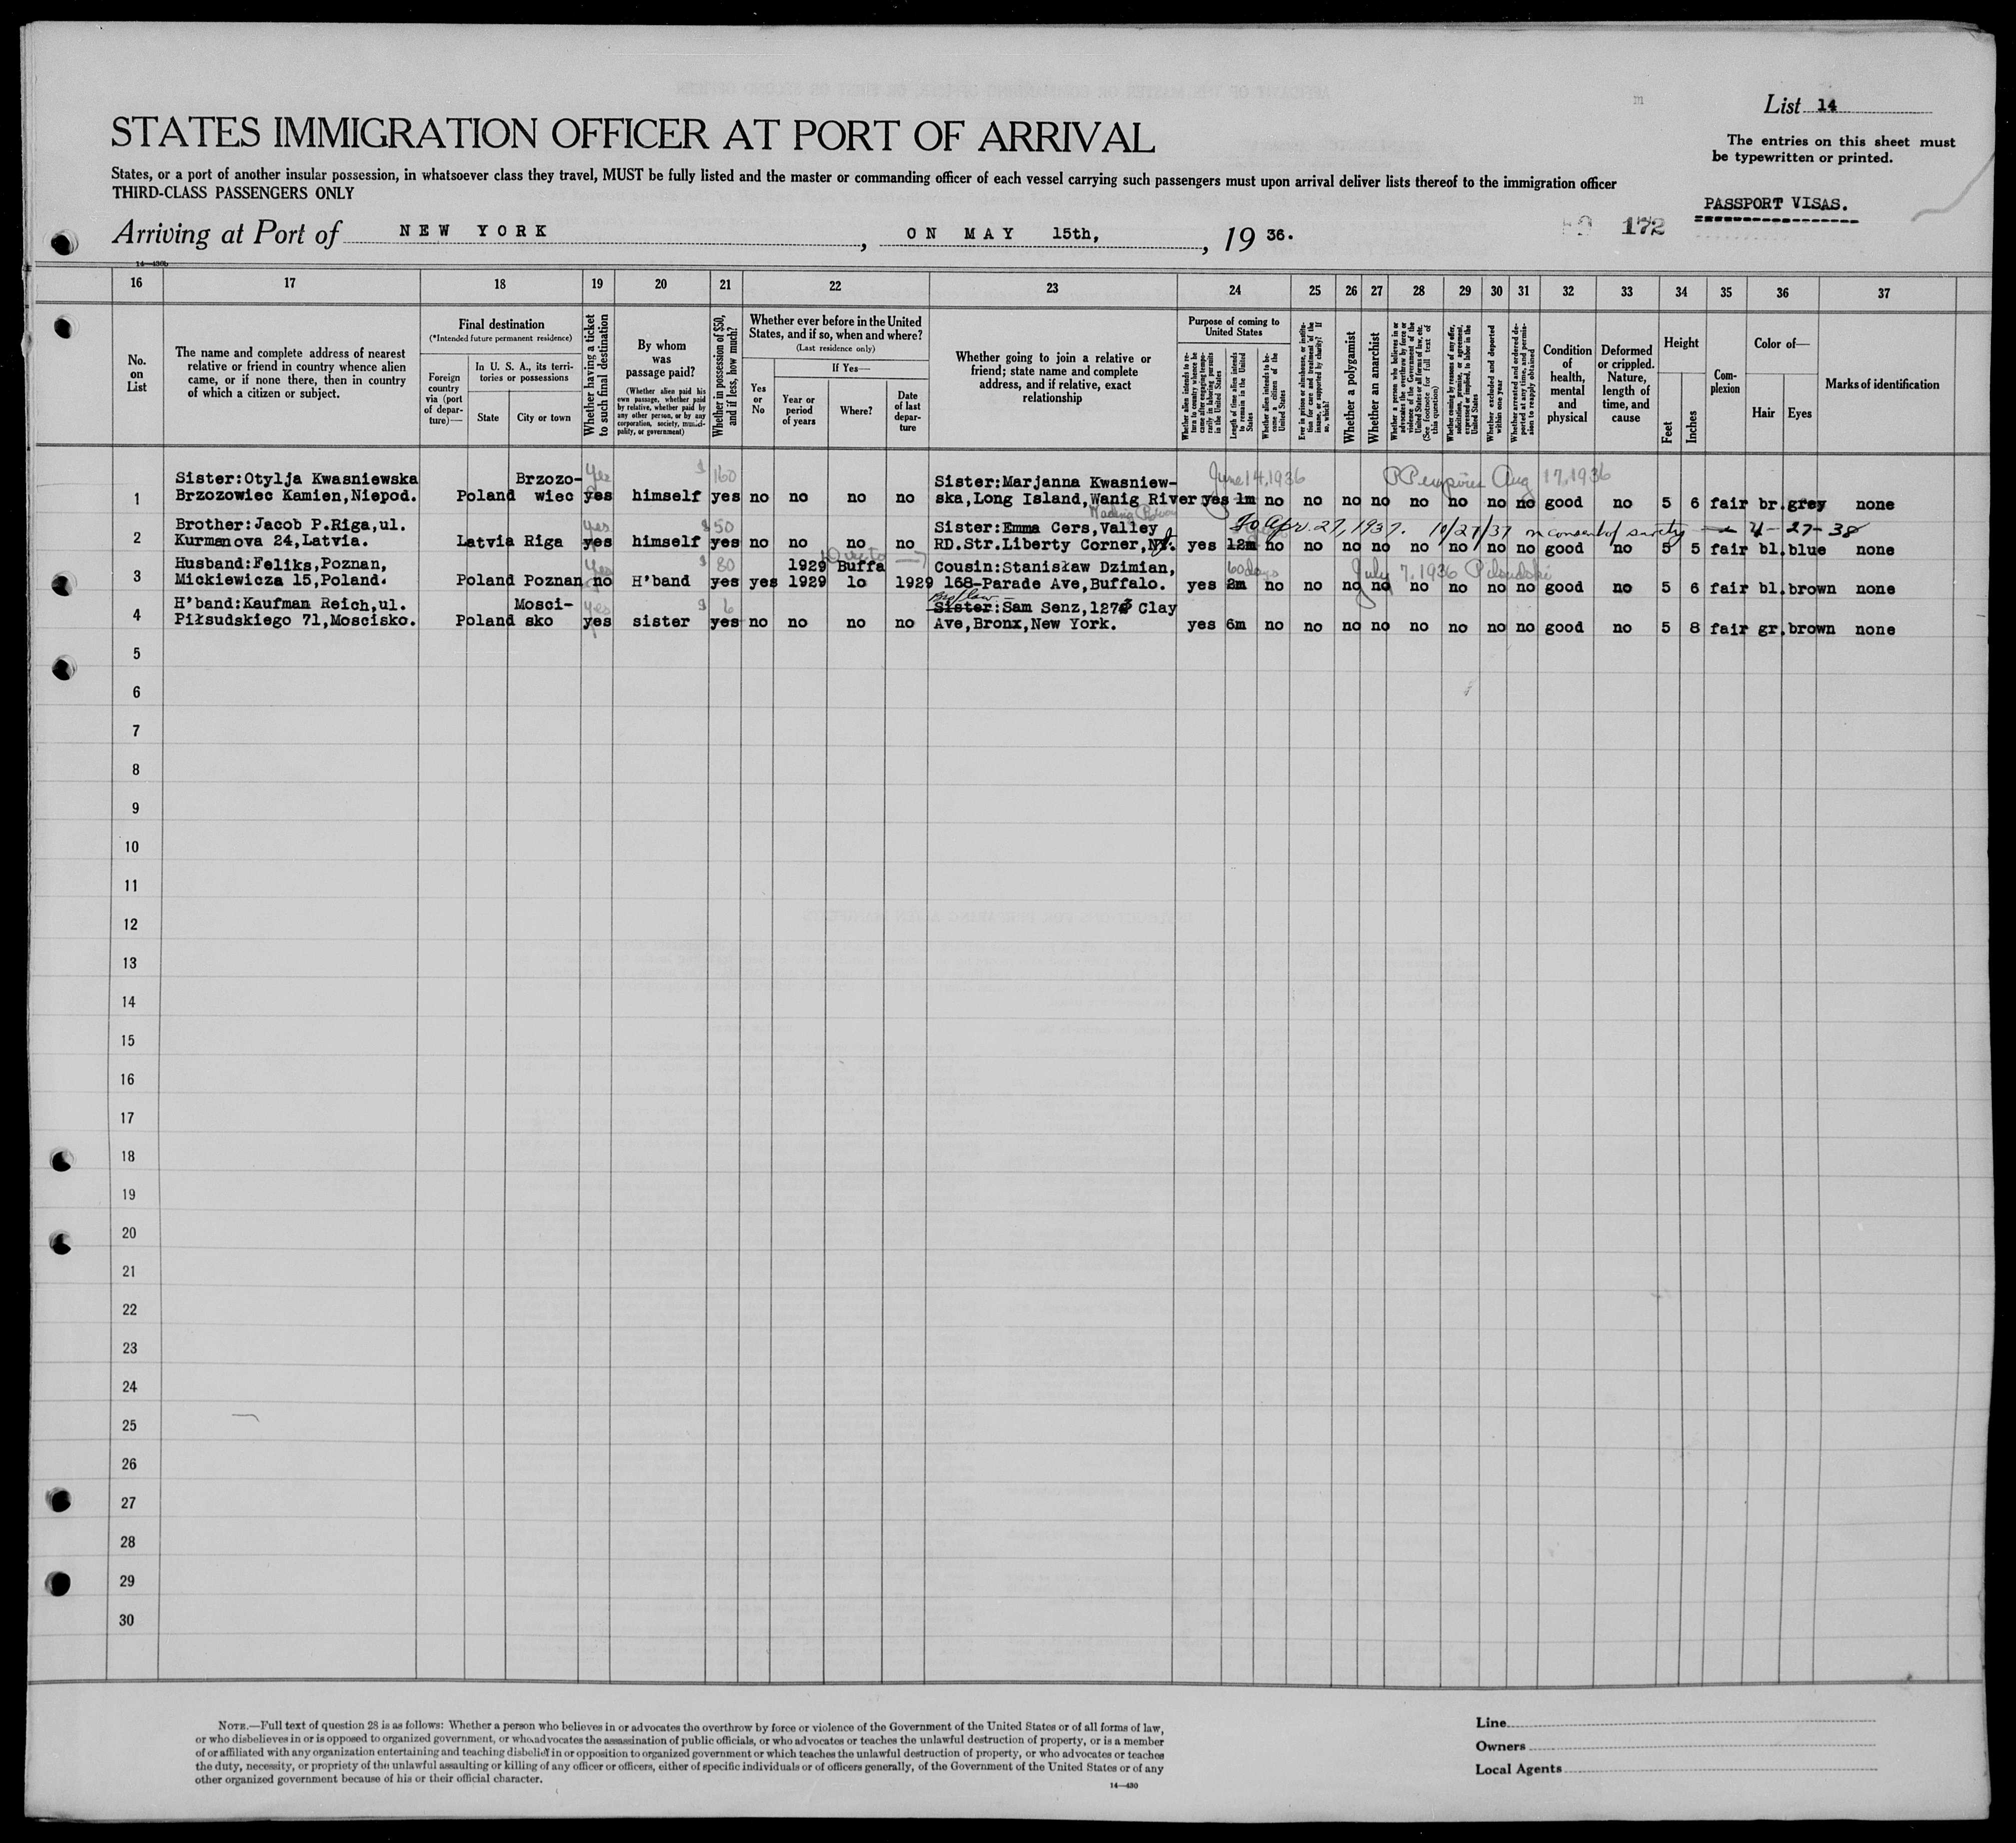 List 14
STATES IMMIGRATION OFFICER AT PORT OF ARRIVAL
The entries on this sheet must
be typewritten or printed.
States, or a port of another insular possession, in whatsoever class they travel, MUST be fully listed and the master or commanding officer of each vessel carrying such passengers must upon arrival deliver lists thereof to the immigration officer
THIRD-CLASS PASSENGERS ONLY
PASSPORT VISAS.
172
Arriving at Port of NEW YORK, ON MAY 15th, 1936.
14—430b
16 17 18 19 20 21 22 23 24 25 26 27 28 29 30 31 32 33 34 35 36 37
No. on List
The name and complete address of nearest relative or friend in country whence alien came, or if none there, then in country of which a citizen or subject.
Final destination
(*Intended future permanent residence)
Foreign country via (port of departure)—
In U. S. A., its territories or possessions
State
City or town
Whether having a ticket to such final destination
By whom was passage paid?
(Whether alien paid his own passage, whether paid by relative, whether paid by any other person, or by any corporation, society, municipality, or government)
Whether in possession of $50, and if less, how much?
Whether ever before in the United States, and if so, when and where?
(Last residence only)
Yes or No
If Yes—
Year or period of years
Where?
Date of last departure
Whether going to join a relative or friend; state name and complete address, and if relative, exact relationship
Purpose of coming to United States
Whether alien intends to return to country whence he came after engaging temporarily in laboring pursuits in the United States
Length of time alien intends to remain in the United States
Whether alien intends to become a citizen of the United States
Ever in prison or almshouse, or institution for care and treatment of the insane, or supported by charity? If so, which?
Whether a polygamist
Whether an anarchist
Whether a person who believes in or advocates the overthrow by force or violence of the Government of the United States or all forms of law, etc. (See footnote for full text of this question)
Whether coming by reasons of any offer, solicitation, promise, or agreement, expressed or implied, to labor in the United States
Whether excluded and deported within one year
Whether arrested and ordered deported at any time, and permission to reapply obtained
Condition of health, mental and physical
Deformed or crippled. Nature, length of time, and cause
Height
Feet
Inches
Complexion
Color of—
Hair
Eyes
Marks of identification
Sister:Otylja Kwasniewska Brzozo- yes $ 160 Sister:Marjanna Kwasniew- June 14,1936 PP expires Aug 17,1936
1 Brzozowiec Kamien,Niepod. Poland wiec yes himself yes no no no no ska,Long Island,Wanig River yes 1m no no no no no no no no good no 5 6 fair br. grey none
Wading River
Brother:Jacob P.Riga,ul. yes $50 Sister:Emma Cers,Valley To Apr. 27, 1937. 10/27/37 on consent of surety 4-27-38
2 Kurmanova 24,Latvia. Latvia Riga yes himself yes no no no no RD.Str.Liberty Corner,NJ. yes 12m no no no no no no no no good no 5 5 fair bl. blue none
Husband:Feliks,Poznan, yes $ 80 1929 Buffa Cousin:Stanisław Dzimian, 60 days July 7, 1936 Pilsudski
3 Mickiewicza 15,Poland. Poland Poznan no H'band yes yes 1929 lo 1929 168-Parade Ave,Buffalo. yes 2m no no no no no no no no good no 5 6 fair bl. brown none
H'band:Kaufman Reich,ul. Mosci- yes $ 6 Sister:Sam Senz,1273 Clay
4 Piłsudskiego 71,Moscisko. Poland sko yes sister yes no no no no Ave,Bronx,New York. yes 6m no no no no no no no no good no 5 8 fair gr. brown none
5
6
7
8
9
10
11
12
13
14
15
16
17
18
19
20
21
22
23
24
25
26
27
28
29
30
NOTE.—Full text of question 28 is as follows: Whether a person who believes in or advocates the overthrow by force or violence of the Government of the United States or of all forms of law,
or who disbelieves in or is opposed to organized government, or who advocates the assassination of public officials, or who advocates or teaches the unlawful destruction of property, or is a member
of or affiliated with any organization entertaining and teaching disbelief in or opposition to organized government or which teaches the unlawful destruction of property, or who advocates or teaches
the duty, necessity, or propriety of the unlawful assaulting or killing of any officer or officers, either of specific individuals or of officers generally, of the Government of the United States or of any
other organized government because of his or their official character.
14—430
Line
Owners
Local Agents